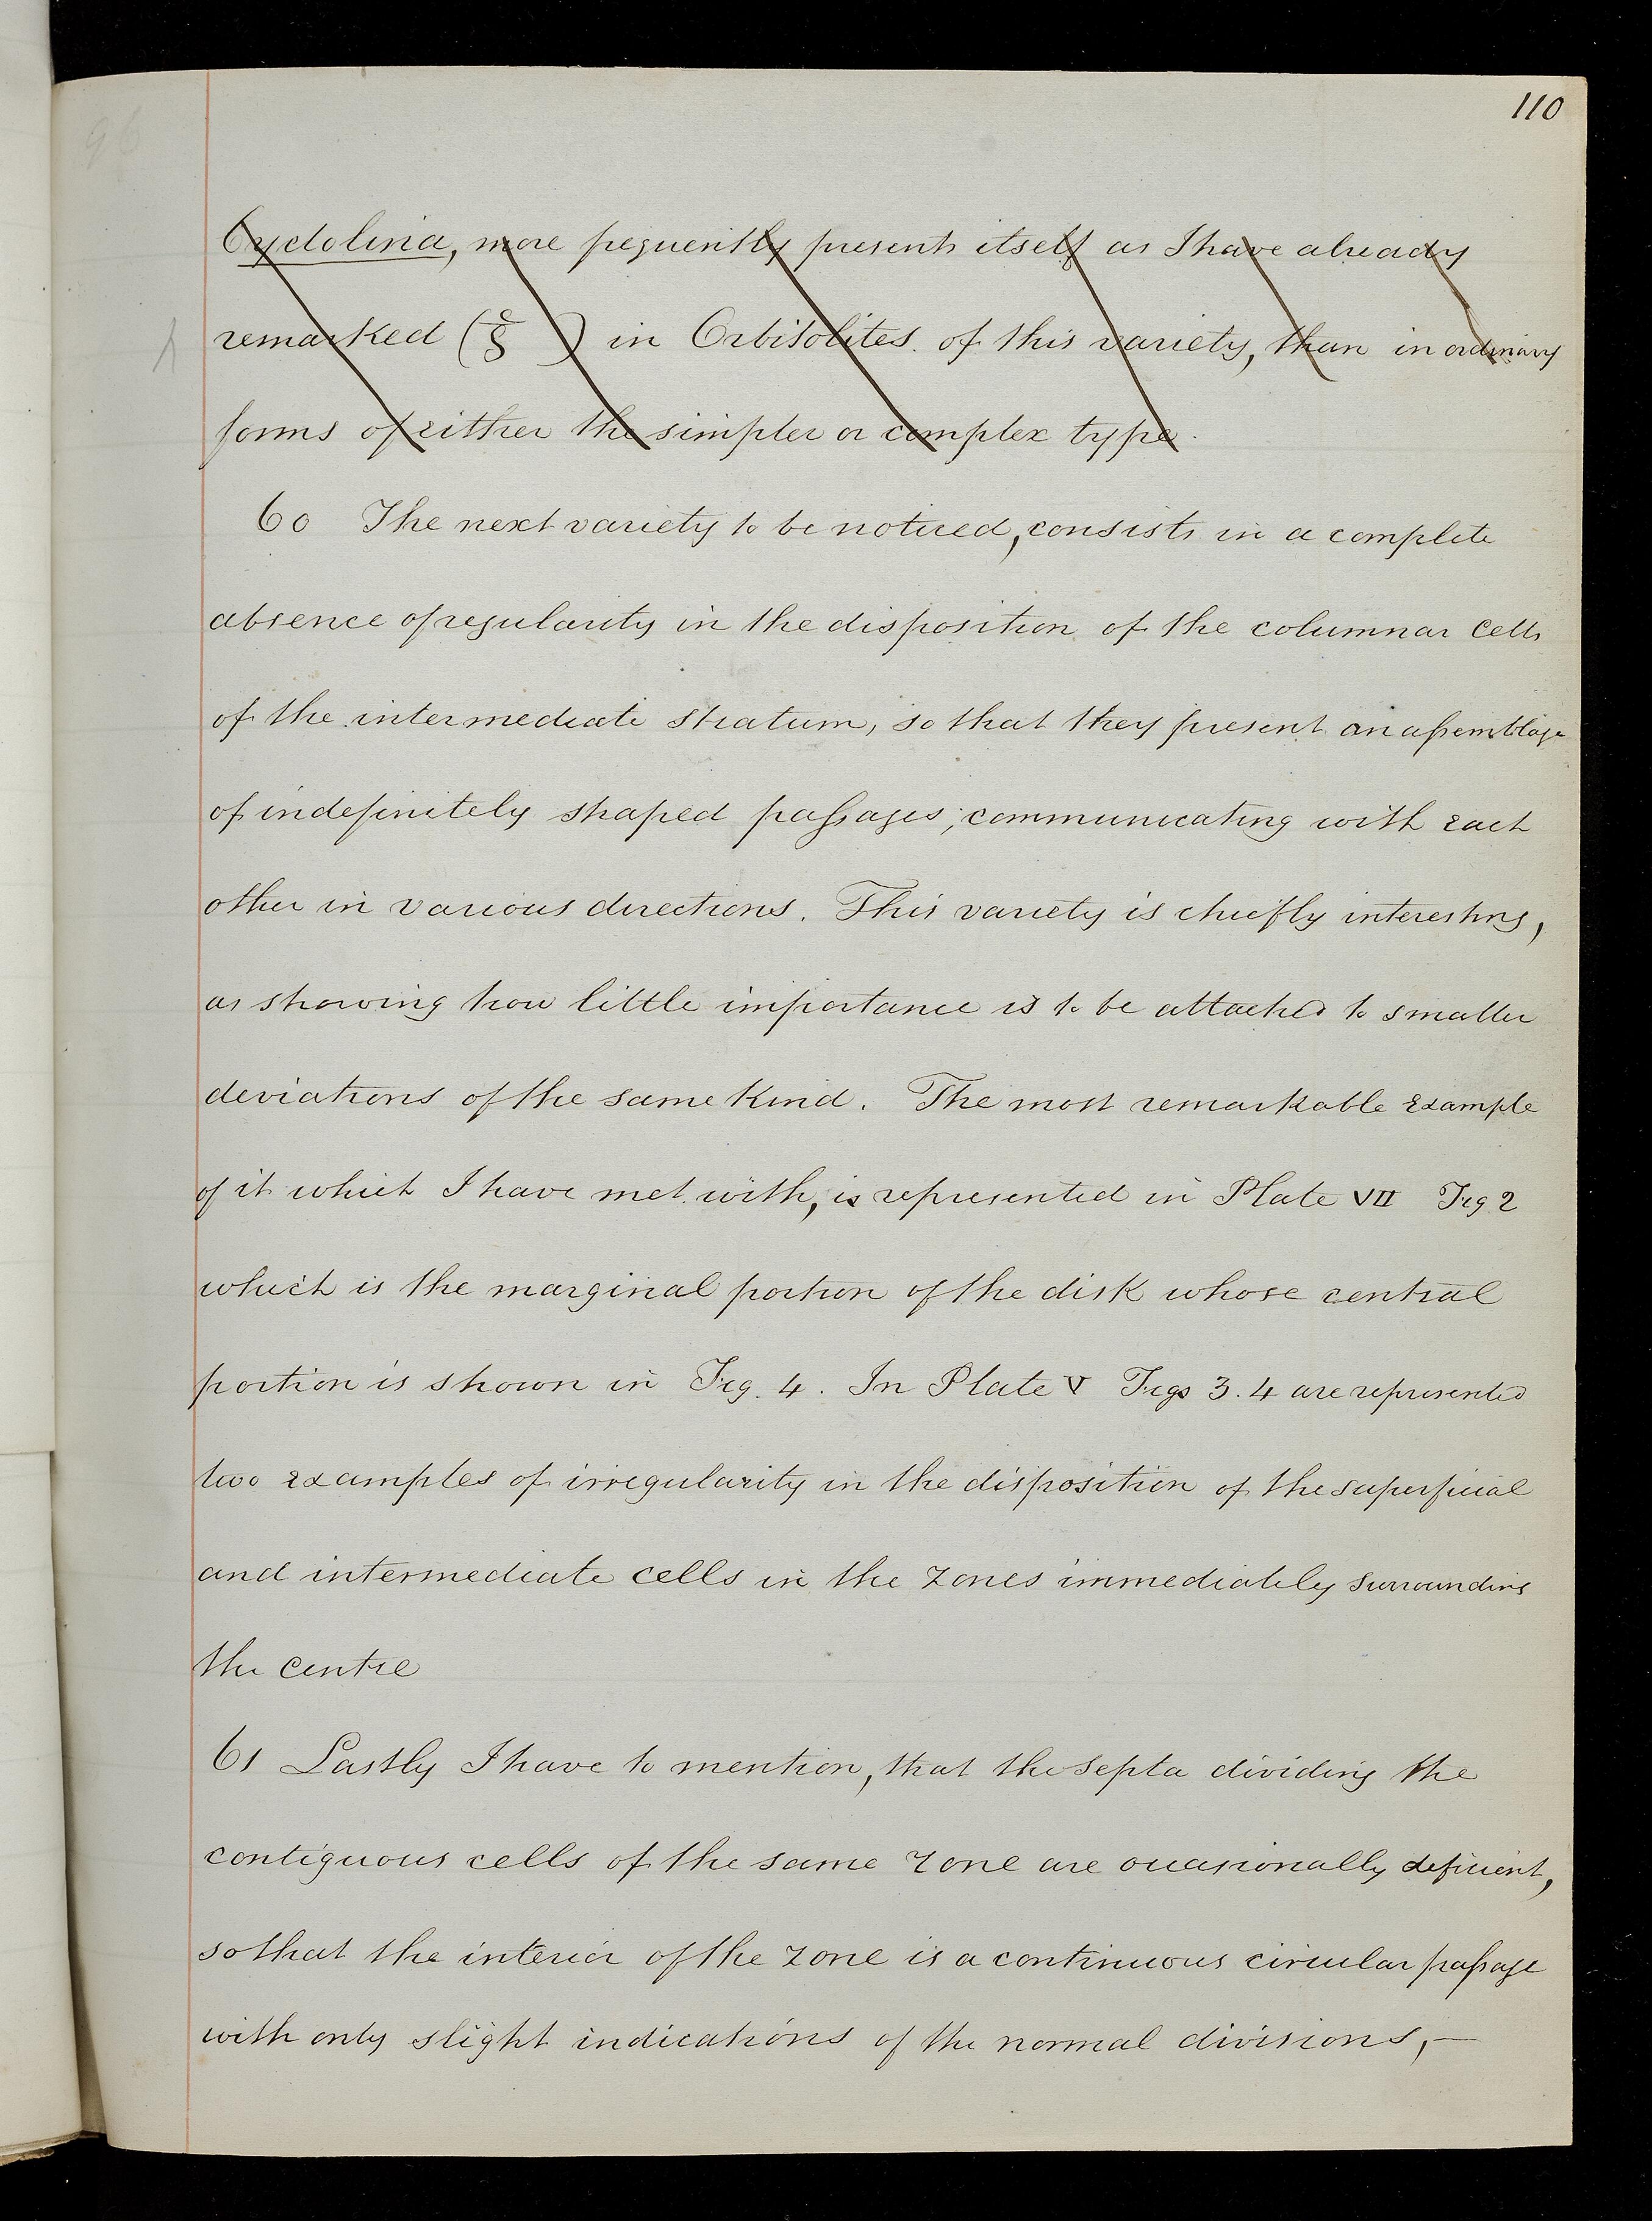 110
96
Cyclolina, more frequently presents itself as I have already
remarked (§ ) in Orbitolites of this variety, than in ordinary
forms of either the simpler or complex type.
60 The next variety to be noticed, consists in a complete
absence of regularity in the disposition of the columnar cells
of the intermediate stratum, so that they present an assemblage
of indefinitely shaped passages; communicating with each
other in various directions. This variety is chiefly interesting,
as showing how little importance is to be attached to smaller
deviations of the same kind. The most remarkable example
of it which I have met with, is represented in Plate VII Fig 2
which is the marginal portion of the disk whose central
portion is shown in Fig. 4. In Plate V Figs 3. 4 are represented
two examples of irregularity in the disposition of the superficial
and intermediate cells in the zones immediately surrounding
the centre
61 Lastly I have to mention, that the septa dividing the
contiguous cells of the same zone are occasionally deficient,
so that the interior of the zone is a continuous circular passage
with only slight indications of the normal divisions,—